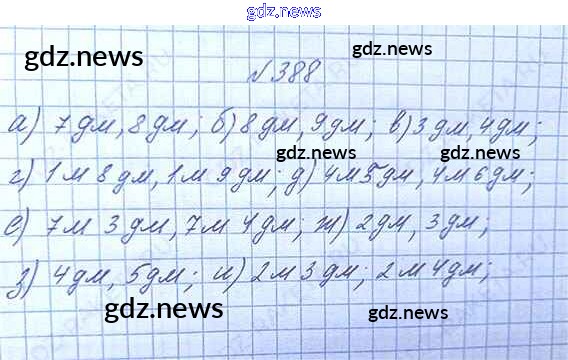 gdz.news
gdz.news gdz.news
№388
а) 7 дм, 8 дм; б) 8 дм, 9 дм; в) 3 дм, 4 дм;
gdz.news gdz.news
г) 1 м 8 дм, 1 м 9 дм; д) 4 м 5 дм, 4 м 6 дм;
е) 7 м 3 дм, 7 м 4 дм; ж) 2 дм, 3 дм;
з) 4 дм, 5 дм; и) 2 м 3 дм; 2 м 4 дм;
gdz.news gdz.news